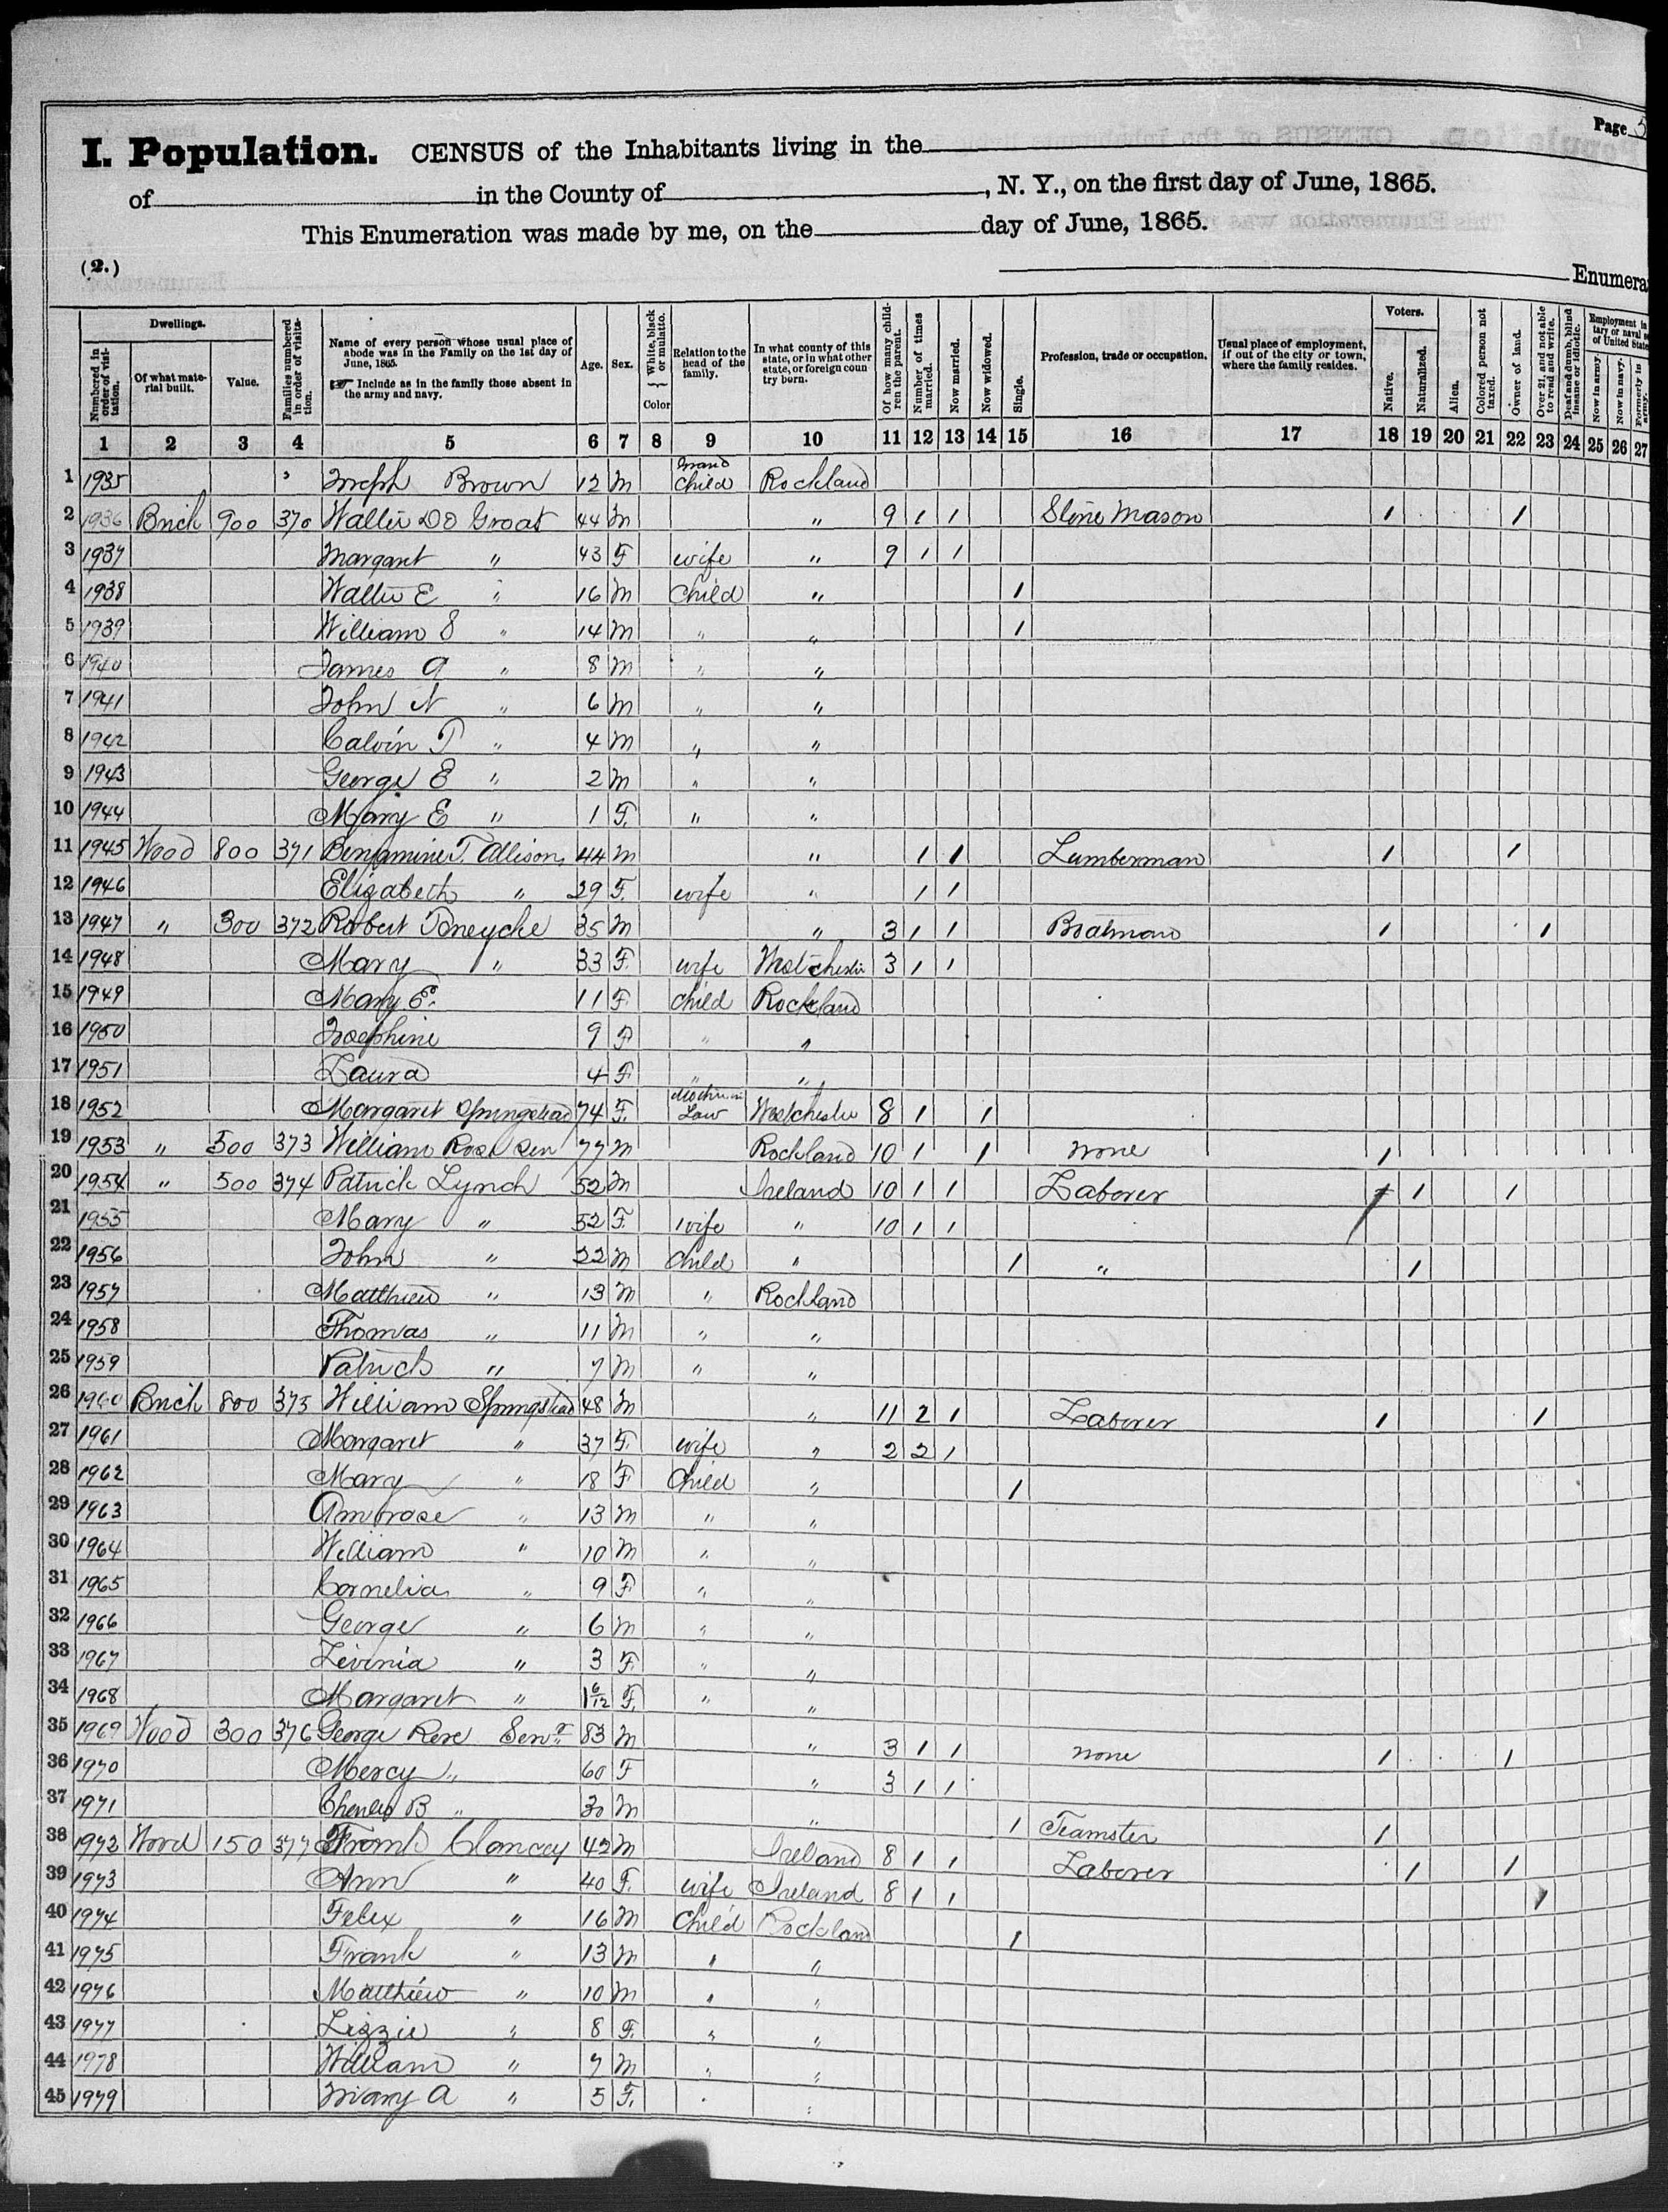 Page 5
I. Population. CENSUS of the Inhabitants living in the
of in the County of , N. Y., on the first day of June, 1865.
This Enumeration was made by me, on the day of June, 1865.
(2.)
Enumera
Numbered in order of visitation. Dwellings. Of what material built. Value. Families numbered in order of visitation. Name of every person whose usual place of abode was in the Family on the 1st day of June, 1865. Include as in the family those absent in the army and navy. Age. Sex. White, black or mulatto. Color Relation to the head of the family. In what county of this state, or in what other state, or foreign country born. Of how many children the parent. Number of times married. Now married. Now widowed. Single. Profession, trade or occupation. Usual place of employment, if out of the city or town, where the family resides. Voters. Native. Naturalized. Alien. Colored person not taxed. Owner of land. Over 21, and not able to read and write. Deaf and dumb, blind insane or idiotic. Employment in tary or naval of United State Now in army. Now in navy. Formerly in army.
1 2 3 4 5 6 7 8 9 10 11 12 13 14 15 16 17 18 19 20 21 22 23 24 25 26 27
1 1935 " Joseph Brown 12 M Grand Child Rockland
2 1936 Brick 900 370 Walter De Groat 44 M " 9 1 1 Stone Mason 1 1
3 1937 Margaret " 43 F wife " 9 1 1
4 1938 Walter E " 16 M Child " 1
5 1939 William S " 14 M " " 1
6 1940 James A " 8 M " "
7 1941 John N " 6 M " "
8 1942 Calvin T " 4 M " "
9 1943 George E " 2 M " "
10 1944 Mary E " 1 F. " "
11 1945 Wood 800 371 Benjamine T. Allison 44 M " 1 1 Lumberman 1 1
12 1946 Elizabeth " 29 F. wife " 1 1
13 1947 " 300 372 Robert 35 M " 3 1 1 Boatman 1 1
14 1948 Mary " 33 F. wife Westchester 3 1 1
15 1949 Mary E. 11 F child Rockland
16 1950 Josephine 9 F " "
17 1951 Laura 4 F. " "
18 1952 Margaret Springstead 74 F. Mother in Law Westchester 8 1 1
19 1953 " 500 373 William Rose Sen 77 M Rockland 10 1 1 none 1
20 1954 " 500 374 Patrick Lynch 52 M Ireland 10 1 1 Laborer 1 1 1
21 1955 Mary " 52 F. wife " 10 1 1
22 1956 John " 22 M Child " 1 " 1
23 1957 Matthew " 13 M " Rockland
24 1958 Thomas " 11 M " "
25 1959 Patrick " 7 M " "
26 1960 Brick 800 375 William Springstead 48 M " 11 2 1 Laborer 1 1
27 1961 Margaret " 37 F. wife " 2 2 1
28 1962 Mary " 18 F Child " 1
29 1963 Ambrose " 13 M " "
30 1964 William " 10 M " "
31 1965 Cornelia " 9 F. " "
32 1966 George " 6 M " "
33 1967 Levinia " 3 F. " "
34 1968 Margaret " 1 6/12 F. " "
35 1969 Wood 300 376 George Rose Senr 83 M " 3 1 1 none 1 1
36 1970 Mercy " 60 F " 3 1 1
37 1971 Charles B " 30 M " 1 Teamster 1
38 1972 Wood 150 377 Frank Clancey 42 M Ireland 8 1 1 Laborer 1 1
39 1973 Ann " 40 F. wife Ireland 8 1 1 1
40 1974 Felix " 16 M Child Rockland 1
41 1975 Frank " 13 M " "
42 1976 Matthew " 10 M " "
43 1977 Lizzie " 8 F. " "
44 1978 William " 7 M " "
45 1979 Mary A " 5 F. " "